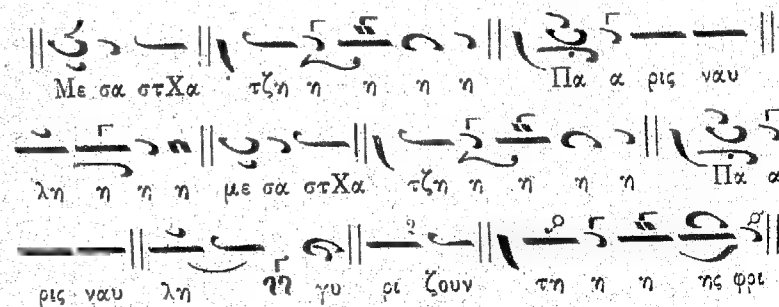 Με σα στΧα τζη η η η η Πα α ρις ναυ
λη η η η με σα στΧα τζη η η η η Πα α
ρις ναυ λη γυ ρι ζουν τη η η ης φρι